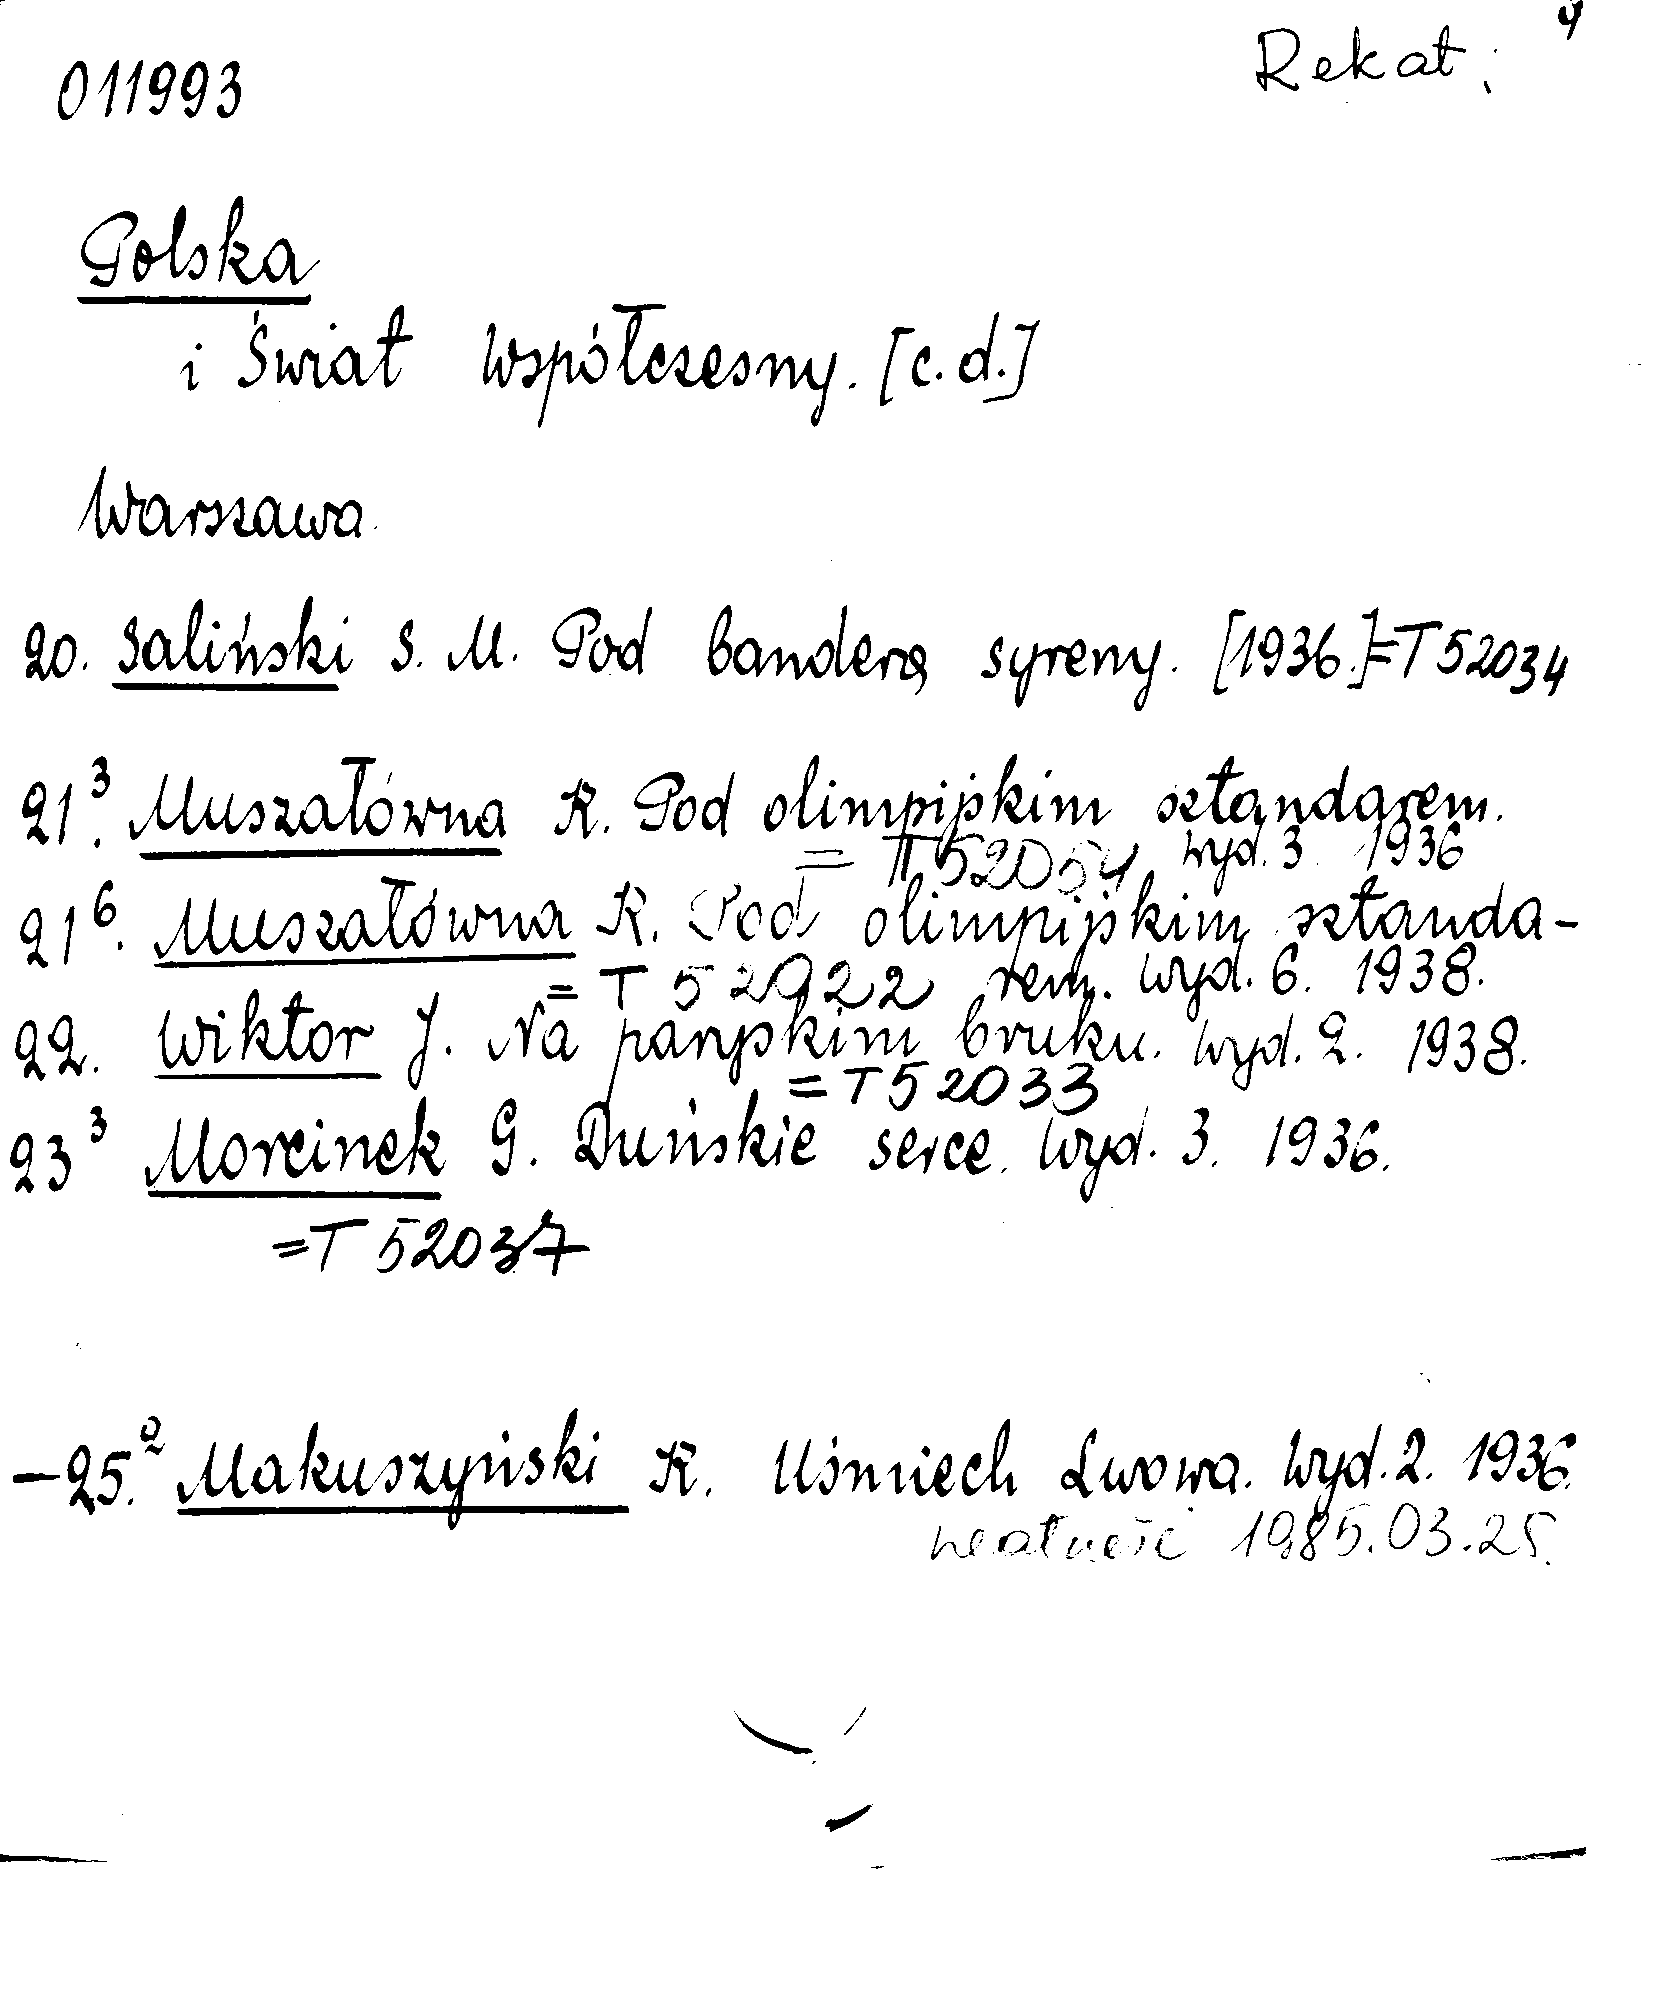 4
011993
Rekat.
Polska
i świat współczesny. [c.d.]
Warszawa
20. Saliński S. M. Pod banderą syreny. [1936.]=T52034
21³. Muszałówna K. Pod olimpijskim sztandarem.
= T52054 wyd. 3 1936
21⁶. Muszałówna K. Pod olimpijskim sztanda-
= T 52922 rem. wyd. 6. 1938.
22. Wiktor J. Na paryskim bruku. wyd. 2. 1938.
= T52033
23³ Morcinek G. Duńskie serce. wyd. 3. 1936.
=T 52037
–25.² Makuszyński K. Uśmiech Lwowa. wyd. 2. 1936.
1985.03.25.